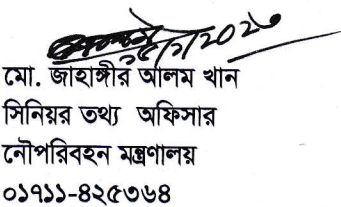 মো. জাহাঙ্গীর আলম খান
সিনিয়র তথ্য অফিসার
নৌপরিবহন মন্ত্রণালয়
০১৭১১-৪২৫৩৬৪